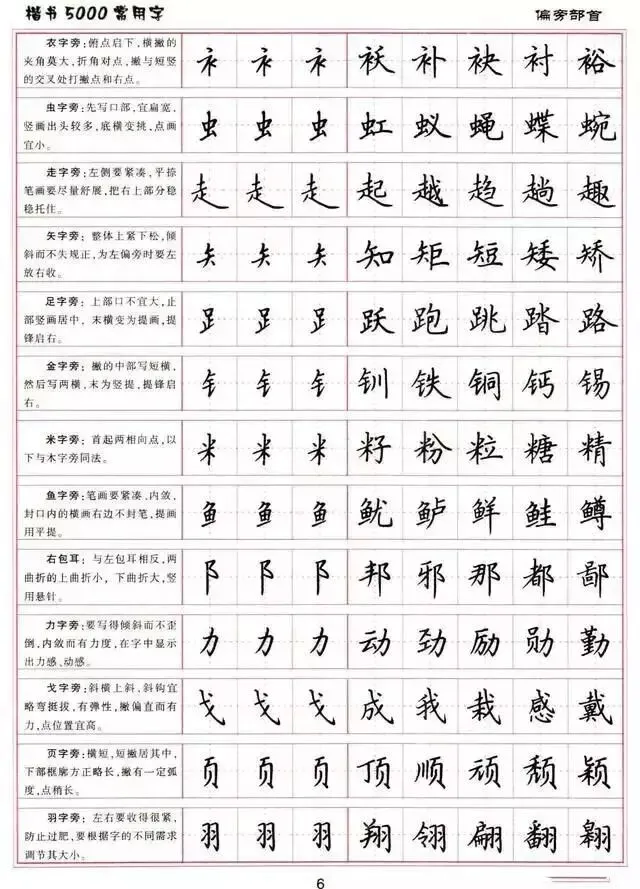 楷书5000常用字
偏旁部首
衣字旁：俯点启下，横撇的
夹角莫大，折角对点，撇与短竖
的交叉处打撇点和右点。
衤 衤 衤 袄 补 袂 衬 裕
虫字旁：先写口部，宜扁宽，
竖画出头较多，底横变挑，点画
宜小。
虫 虫 虫 虹 蚁 蝇 蝶 蜿
走字旁：左侧要紧凑，平捺
笔画要尽量舒展，把右上部分稳
稳托住。
走 走 走 起 越 趋 趟 趣
矢字旁：整体上紧下松，倾
斜而不失规正，为左偏旁时要左
放右收。
矢 矢 矢 知 矩 短 矮 矫
足字旁：上部口不宜大，止
部竖画居中，末横变为提画，提
锋启右。
𧾷 𧾷 𧾷 跃 跑 跳 踏 路
金字旁：撇的中部写短横，
然后写两横，末为竖提，提锋启
右。
钅 钅 钅 钏 铁 铜 钙 锡
米字旁：首起两相向点，以
下与木字旁同法。
米 米 米 籽 粉 粒 糖 精
鱼字旁：笔画要紧凑，内敛，
封口内的横画右边不封笔，提画
用平提。
鱼 鱼 鱼 鱿 鲈 鲜 鲑 鳟
右包耳：与左包耳相反，两
曲折的上曲折小，下曲折大，竖
用悬针。
阝 阝 阝 邦 邪 那 都 鄙
力字旁：要写得倾斜而不歪
倒，内敛而有力度，在字中显示
出力感，动感。
力 力 力 动 劲 励 勋 勤
戈字旁：斜横上斜，斜钩宜
略弯挺拔，有弹性，撇偏直而有
力，点位置宜高。
戈 戈 戈 成 我 栽 感 戴
页字旁：横短，短撇居其中，
下部框廓方正略长，撇有一定弧
度，点稍长。
页 页 页 顶 顺 顽 颓 颖
羽字旁：左右要收得很紧，
防止过肥，要根据字的不同需求
调节其大小。
羽 羽 羽 翔 翎 翩 翻 翱
6